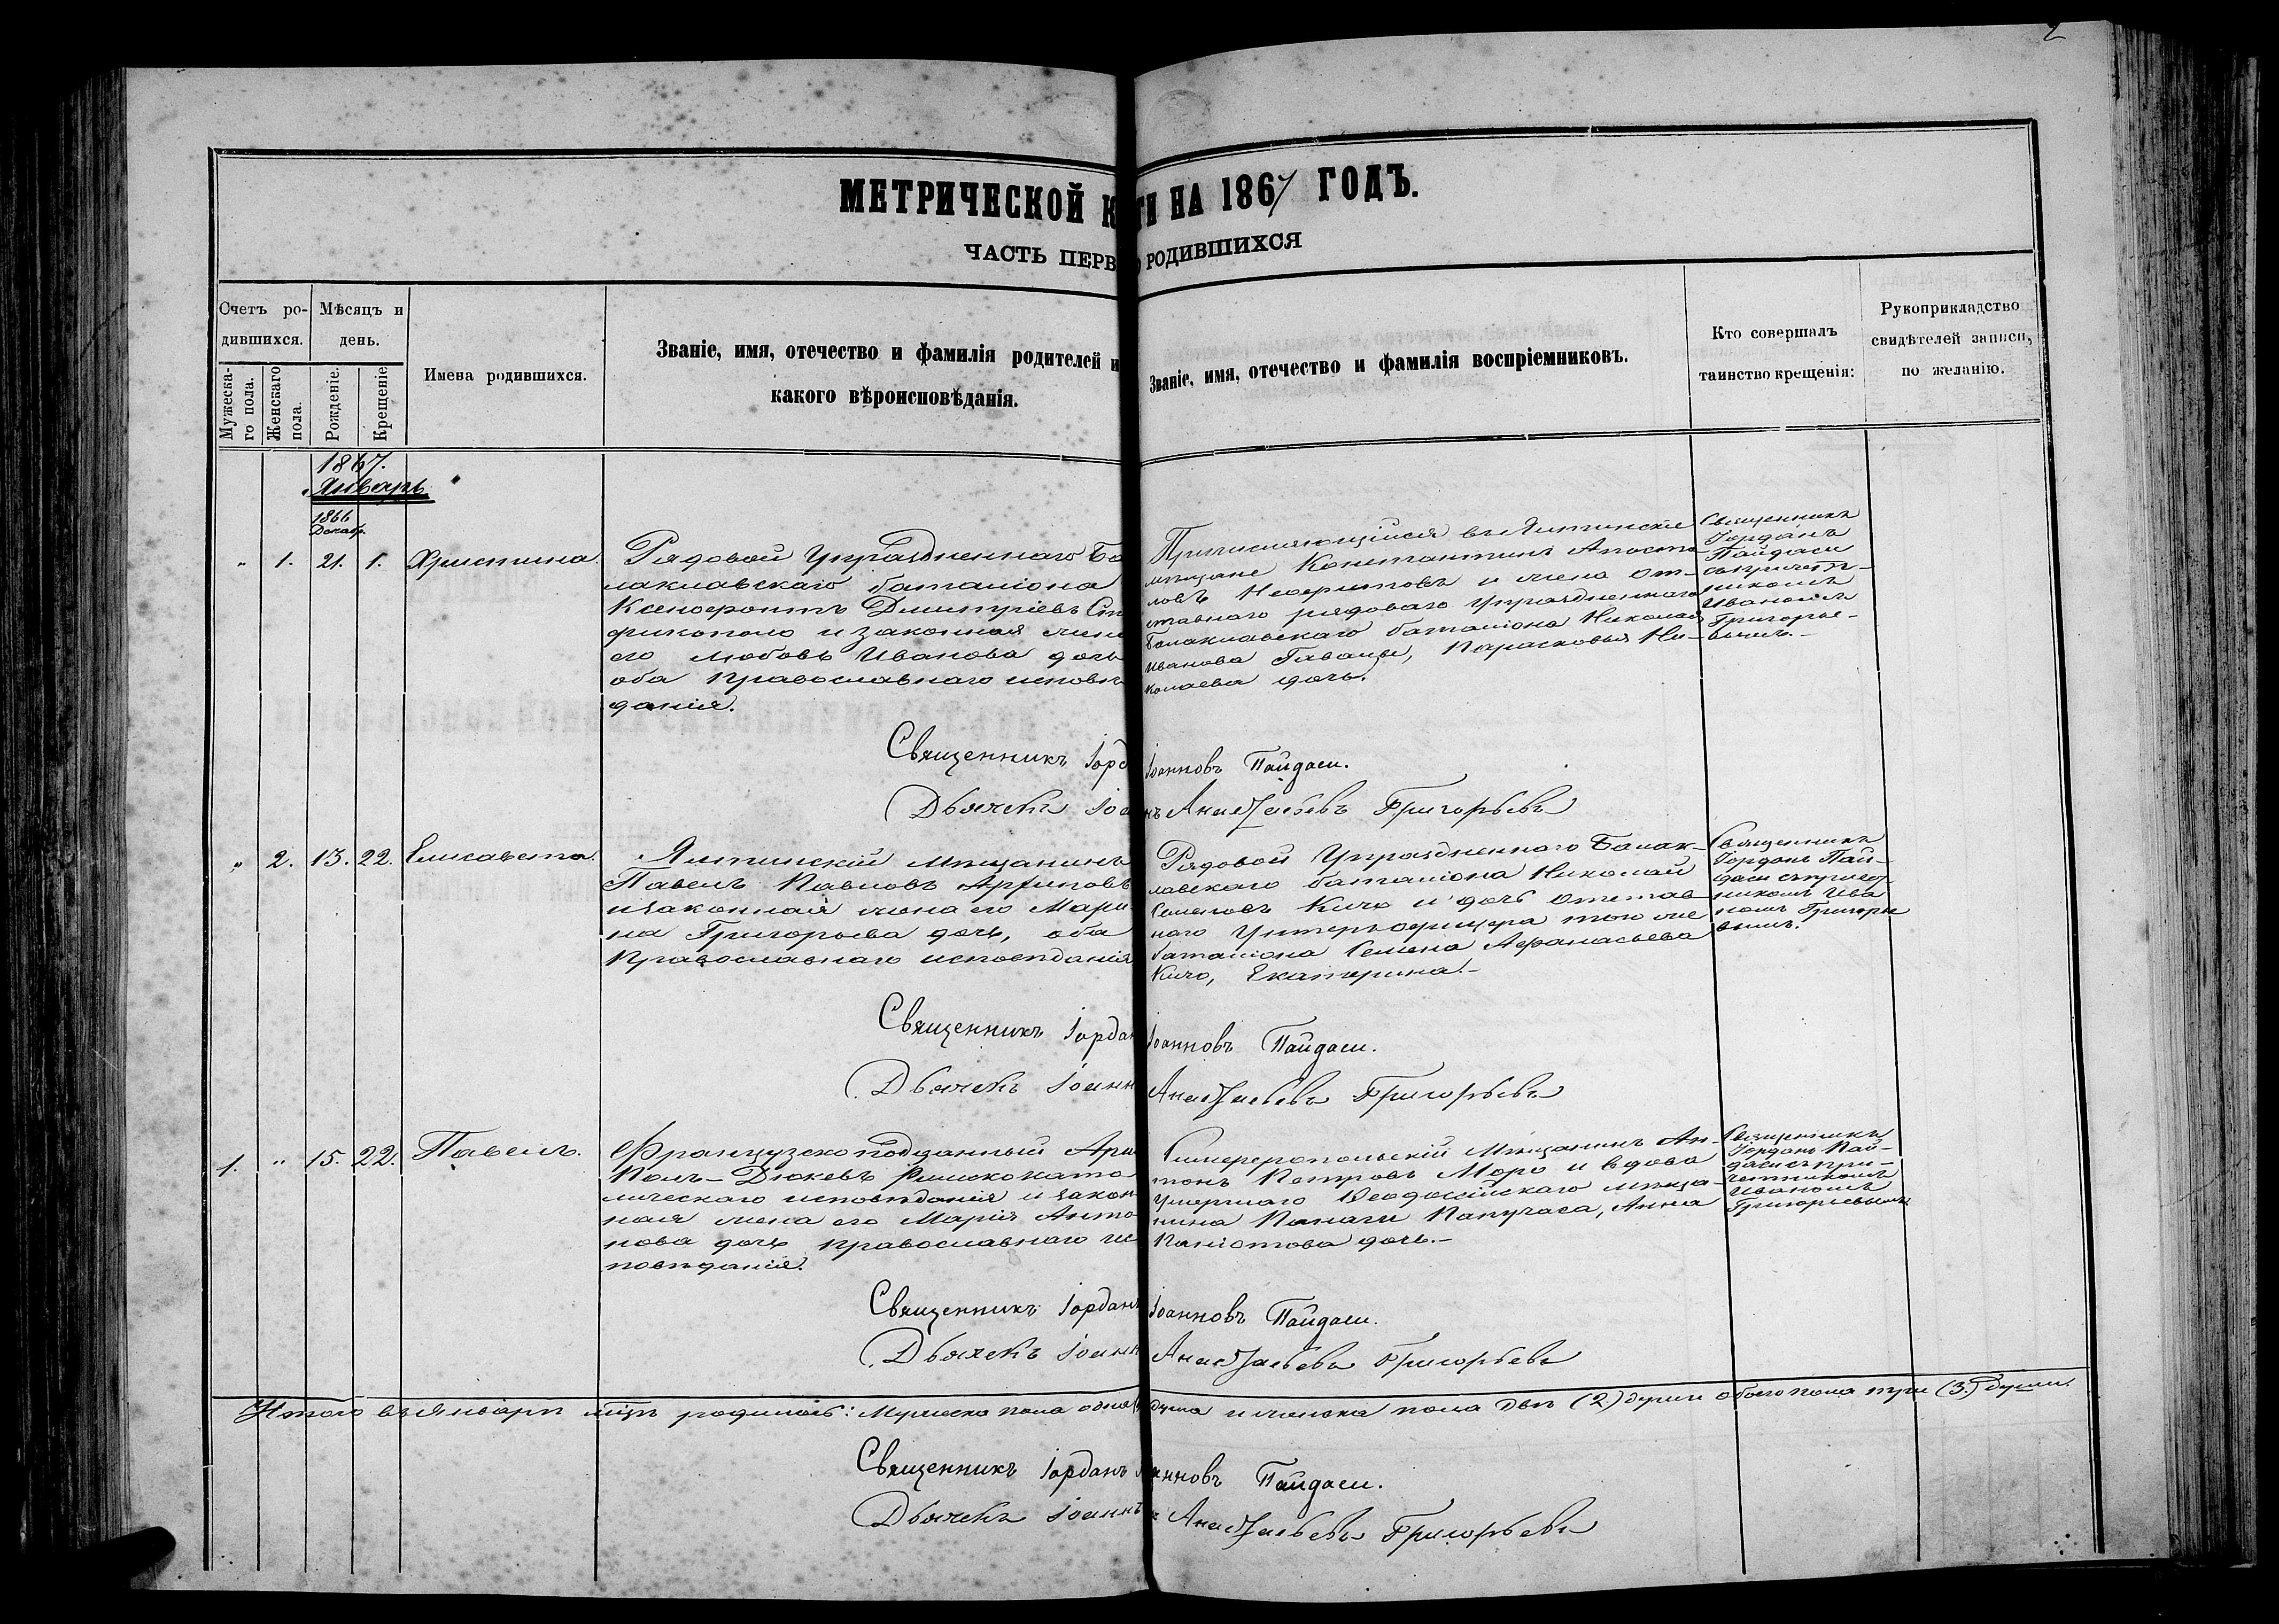 2
МЕТРИЧЕСКОЙ К ГИ НА 1867 ГОДЪ.
ЧАСТЬ ПЕРВ О РОДИВШИХСЯ
Счетъ ро-
дившихся.
Мужеска-
го пола.
Женскаго
пола.
Мѣсяцъ и
день.
Рожденіе.
Крещеніе
Имена родившихся.
Званіе, имя, отечество и фамилія родителей и
какого вѣроисповѣданія.
Званіе, имя, отечество и фамилія воспріемниковъ.
Кто совершалъ
таинство крещенія:
Рукоприкладство
свидѣтелей записи,
по желанію.
1867.
Январь
1866
Декабр.
" 1. 21. 1. Христина.
Рядовой Упраздненнаго Ба
лаклавскаго баталіона
Ксенофонтъ Дмитріевъ Ст
фикополо и законная жена
его Любовь Иванова дочь
оба Православнаго исповѣ
данія.
Приписляющійся въ Ялтинскіе
мѣщане Константинъ Апосто-
ловъ Неофитовъ и жена от-
ставнаго рядоваго Упраздненнаго
Балаклавскаго баталіона Николая
Иванова Гавалы, Парасковья Ни-
колаева дочь.
Священникъ
Іорданъ
Пайдаси
съ причет-
никомъ
Иваномъ
Григорье-
вымъ.-
Священникъ Іорд Іоанновъ Пайдаси.
Дьячекъ Іоа нъ Анастасьевъ Григорьевъ
" 2. 13. 22. Елисавета.
Ялтинскій мѣщанинъ
Павелъ Павловъ Архиповъ
и законная жена его Мари
на Григорьева дочь, оба
Православнаго исповѣданія
Рядовой Упраздненнаго Балак-
лавскаго баталіона Николай
Семеновъ Кичо и дочь отстав
наго Унтеръ-офицера того же
баталіона Семена Афанасьева
Кичо, Екатерина.-
Священникъ
Іорданъ Пай-
даси съ причет-
никомъ Ива
номъ Григорь
вымъ.
Священникъ Іордан Іоанновъ Пайдаси.
Дьячекъ Іоанн Анастасьевъ Григорьевъ
1. " 15. 22. Павелъ.
Французско подданный Ари
Поль-Дюкевъ Римскокато
лическаго исповѣданія и закон
ная жена его Марія Анто
нова дочь Православнаго ис
повѣданія.
Симферопольскій Мѣщанинъ Ан-
тонъ Петровъ Моро и вдова
умершаго Ѳеодосійскаго мѣща-
нина Панаги Папучаса, Анна
Паніотова дочь.-
Священникъ
Іорданъ Пай-
даси съ при-
четникомъ
Иваномъ
Григорьевымъ
Священникъ Іорданъ Іоанновъ Пайдаси.
Дьячекъ Іоанн Анастасьевъ Григорьевъ
Итого въ январѣ мѣцѣ родилось: Мужеска пола одна душа и женска пола двѣ (2) души обоего пола три (3.) души.
Священникъ Іорданъ нновъ Пайдаси.
Дьячекъ Іоаннъ Анастасьевъ Григорьевъ